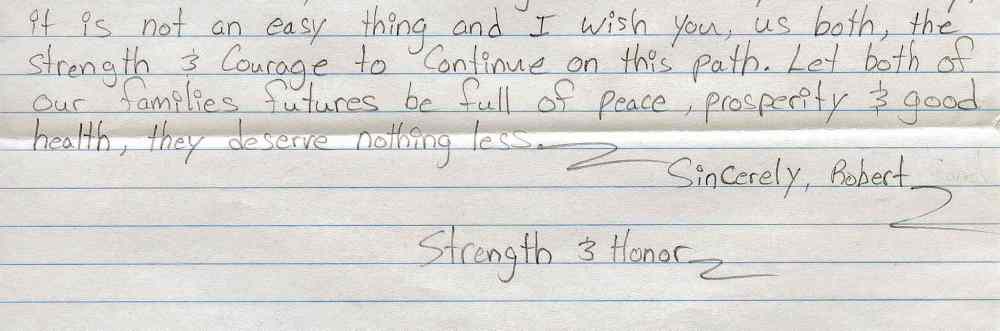 it is not an easy thing and I wish you, us both, the
strength & Courage to Continue on this path. Let both of
our families futures be full of peace, prosperity & good
health, they deserve nothing less.
Sincerely, Robert
Strength & Honor